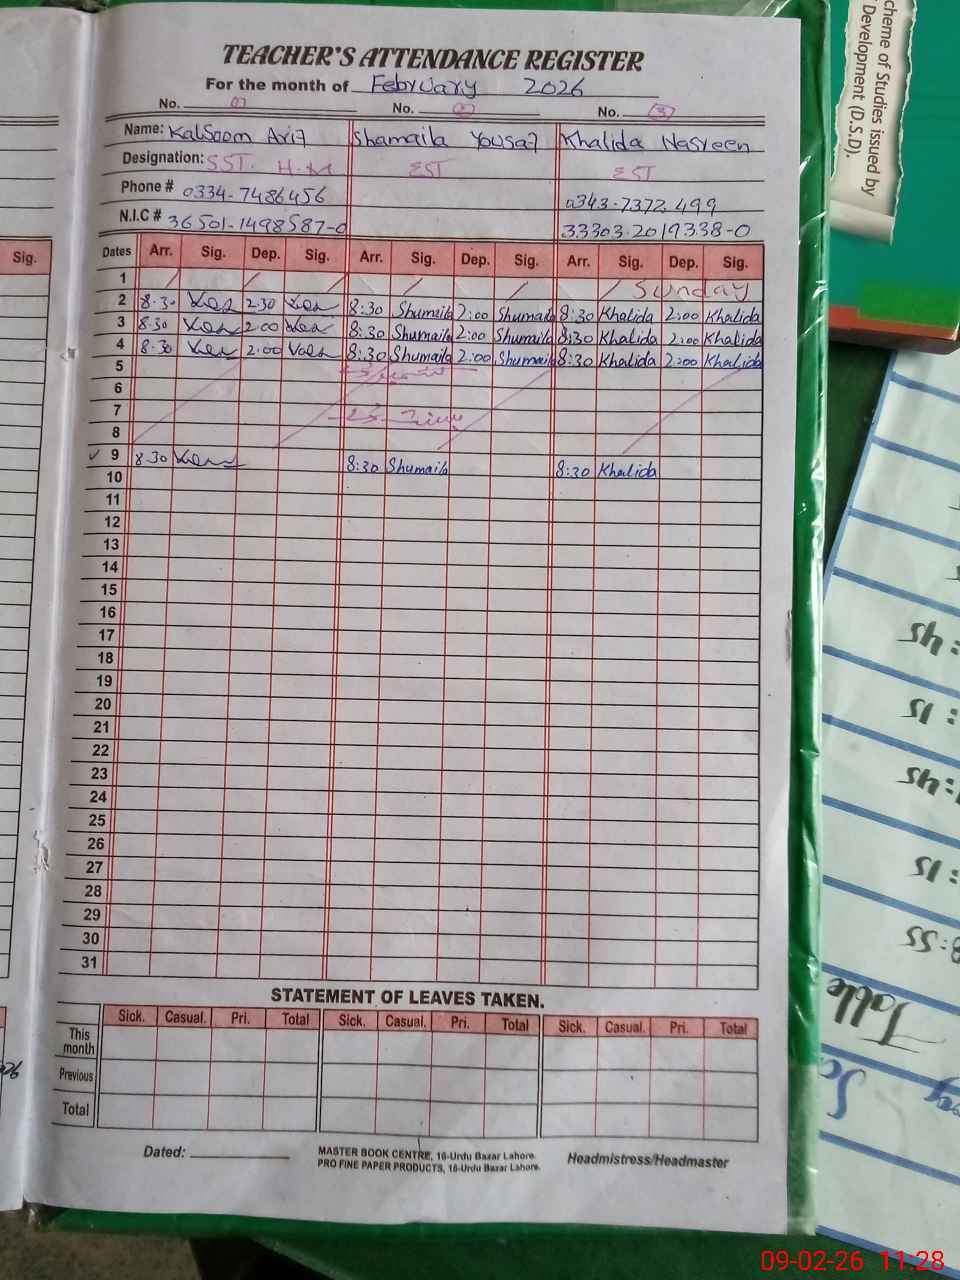 TEACHER'S ATTENDANCE REGISTER
For the month of February 2026
No. 01 No. 2 No. 3
Name: Kalsoom Arif Shamaila Yousaf Khalida Nasreen
Designation: SST. H.M EST EST
Phone # 0334-7486456 0343-7372499
N.I.C # 36501-1498587-0 33303-2019338-0
Sig. Dates Arr. Sig. Dep. Sig. Arr. Sig. Dep. Sig. Arr. Sig. Dep. Sig.
1 Sunday
2 8.30 2.30 8:30 Shumaila 2:00 Shumaila 8:30 Khalida 2:00 Khalida
3 8.30 2.00 8:30 Shumaila 2:00 Shumaila 8:30 Khalida 2:00 Khalida
4 8.30 2.00 8:30 Shumaila 2:00 Shumaila 8:30 Khalida 2:00 Khalida
5
6
7
8
9 8.30 8:30 Shumaila 8:30 Khalida
10
11
12
13
14
15
16
17
18
19
20
21
22
23
24
25
26
27
28
29
30
31
STATEMENT OF LEAVES TAKEN.
Sick. Casual. Pri. Total Sick. Casual. Pri. Total Sick. Casual. Pri. Total
This month
Previous
Total
Dated:
MASTER BOOK CENTRE, 16-Urdu Bazar Lahore.
PRO FINE PAPER PRODUCTS, 16-Urdu Bazar Lahore.
Headmistress/Headmaster
cheme of Studies issued by
Development (D.S.D).
: 45
: 15
: 45
: 15
8:55
Table
09-02-26 11:28